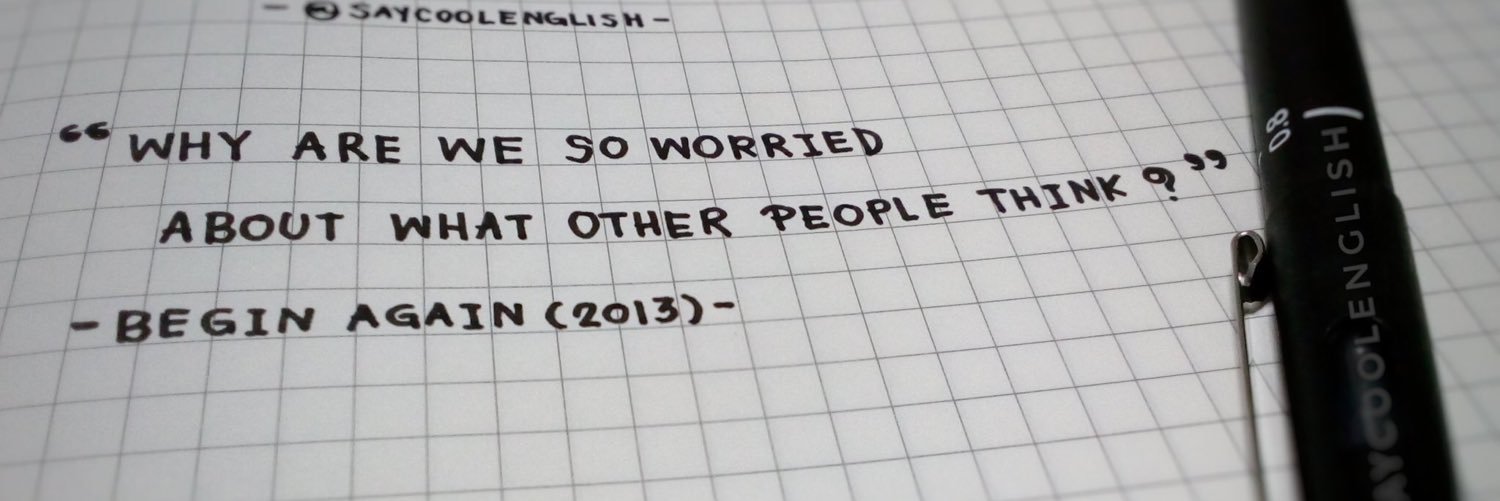 - @SAYCOOLENGLISH -
“WHY ARE WE SO WORRIED
ABOUT WHAT OTHER PEOPLE THINK?”
- BEGIN AGAIN (2013) -
0.8
SAYCOOLENGLISH)